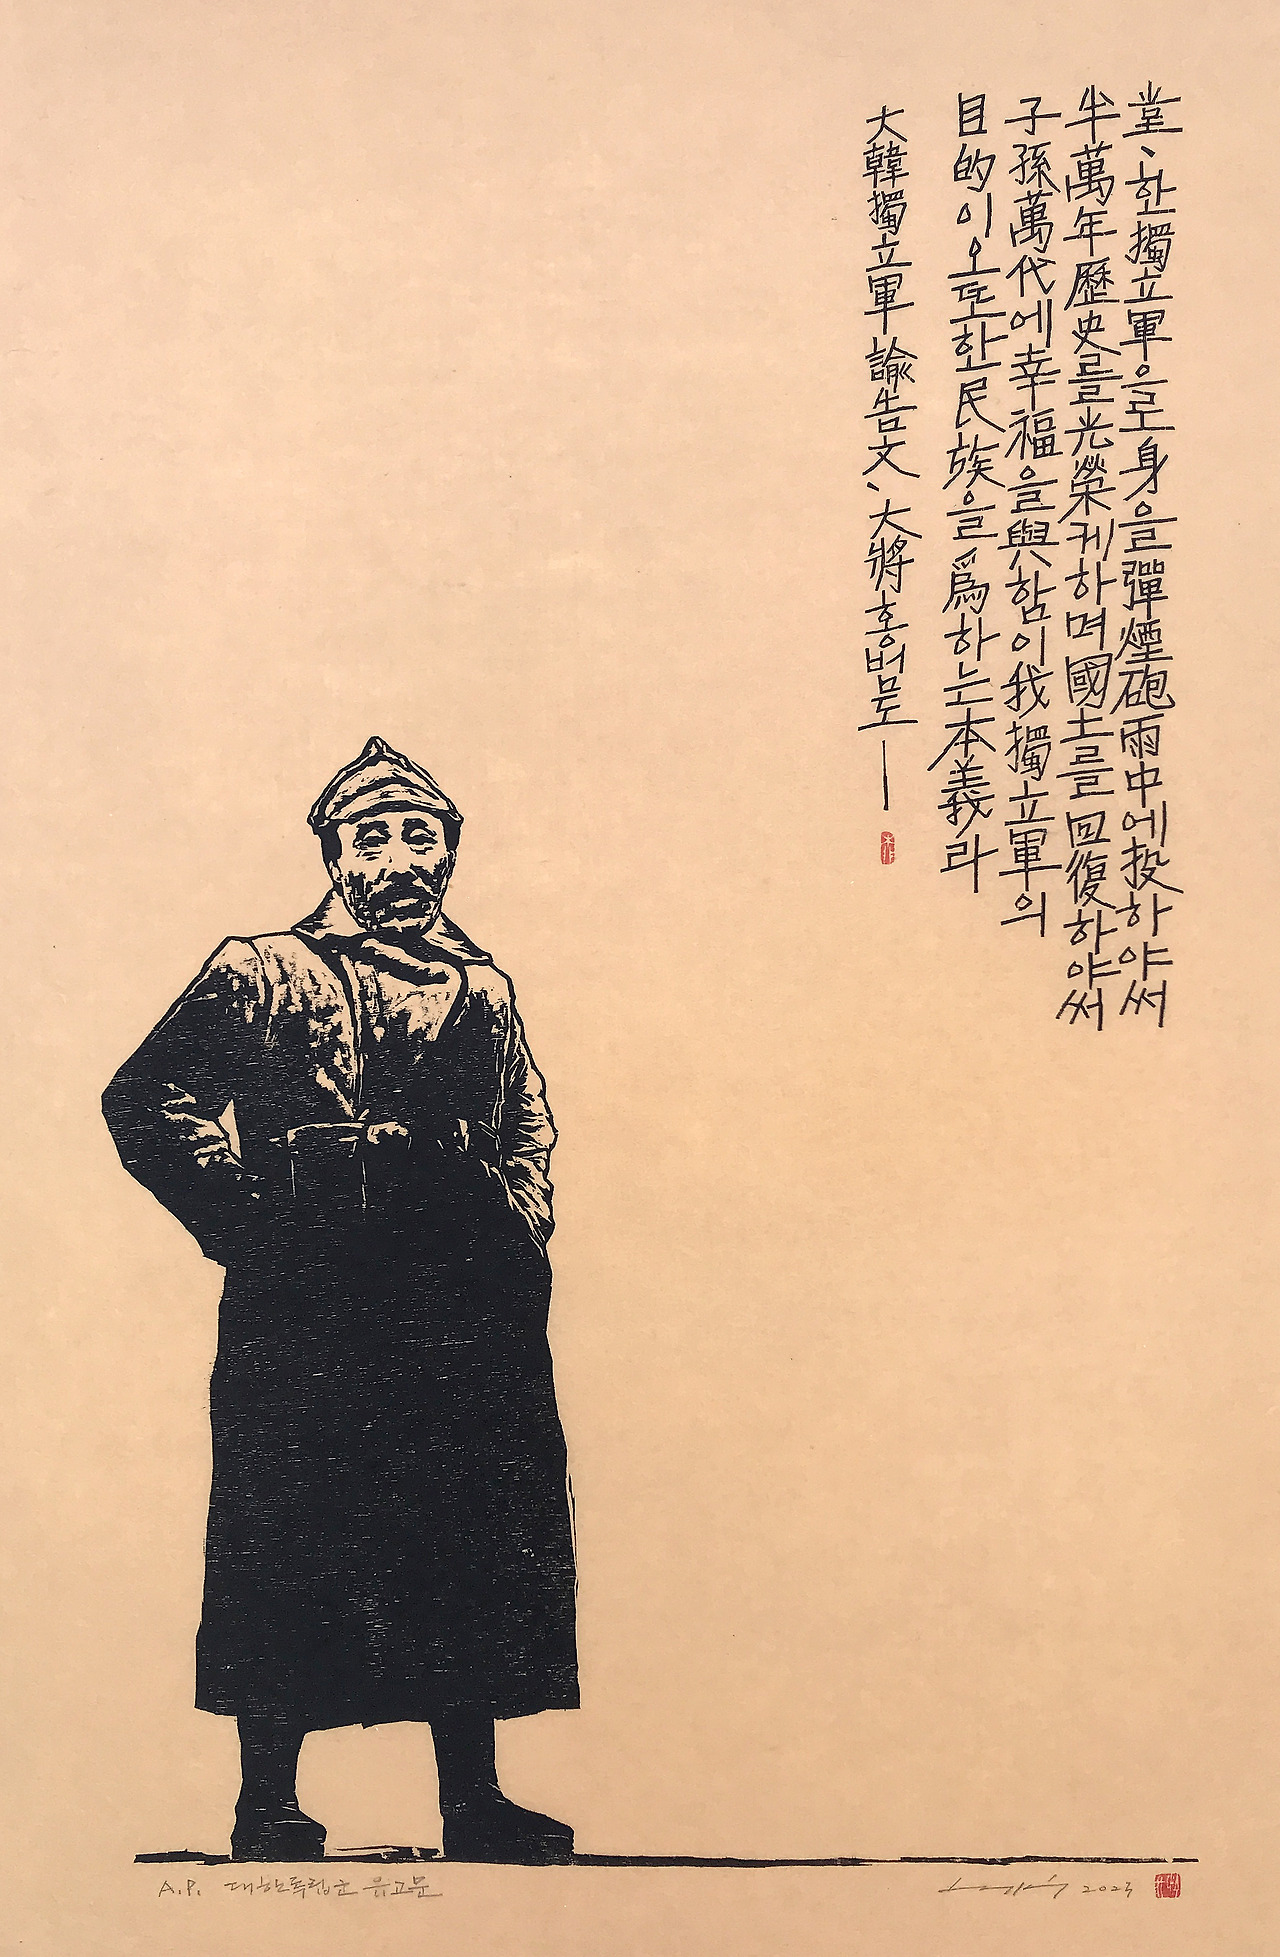 堂、한獨立軍으로身을彈煙砲雨中에投하야써
半萬年歷史를光榮케하며國土를回復하야써
子孫萬代에幸福을與함이我獨立軍의
目的이오또한民族을爲하는本義라
大韓獨立軍諭告文、大將홍범도
A.P. 대한독립군 유고문
2023